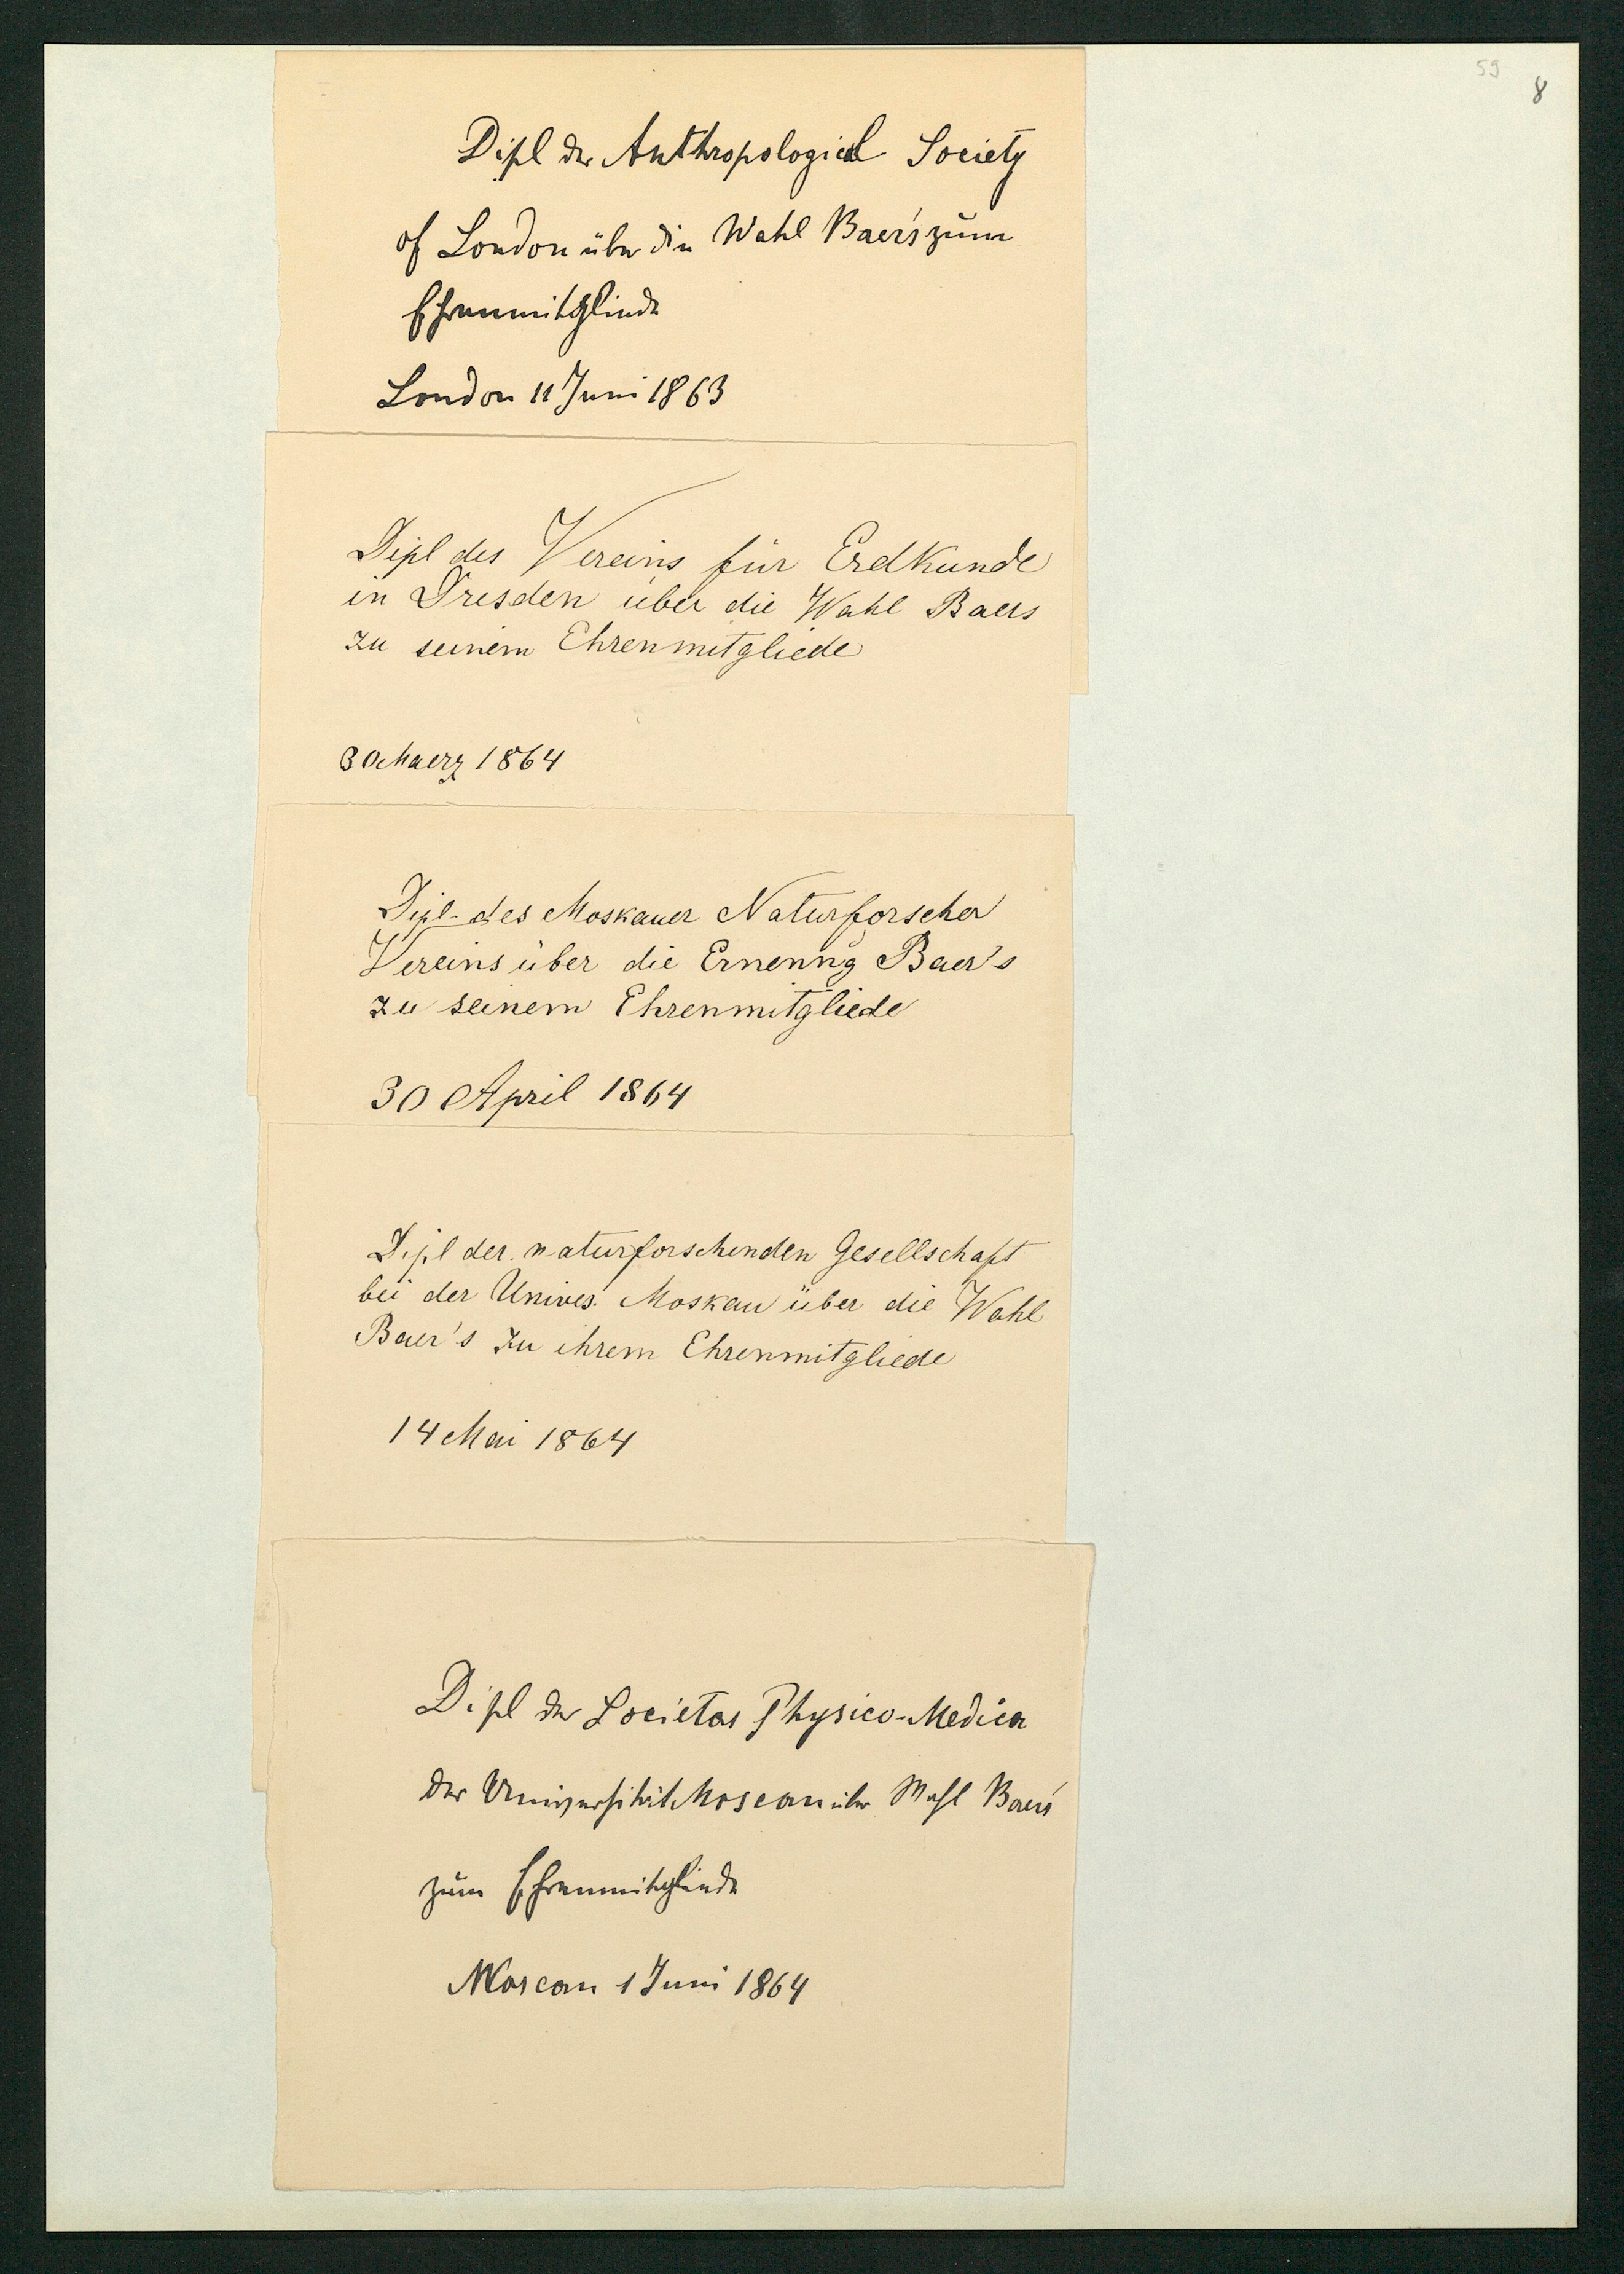 59
8
Dipl der Anthropological Society
of London über die Wahl Baer's zum
Ehrenmitgliede
London 11 Juni 1863
Dipl des Vereins für Erdkunde
in Dresden über die Wahl Baers
zu seinem Ehrenmitgliede
30 Maerz 1864
Dipl. des Moskauer Naturforscher
Vereins über die Ernenng Baer's
zu seinem Ehrenmitgliede
30 April 1864
Dipl der naturforschenden Gesellschaft
bei der Univers. Moskau über die Wahl
Baer's zu ihrem Ehrenmitgliede
14 Mai 1864
Dipl der Societas Physico-Medica
der Universität Moscau über Wahl Baer's
zum Ehrenmitgliede
Moscau 1 Juni 1864